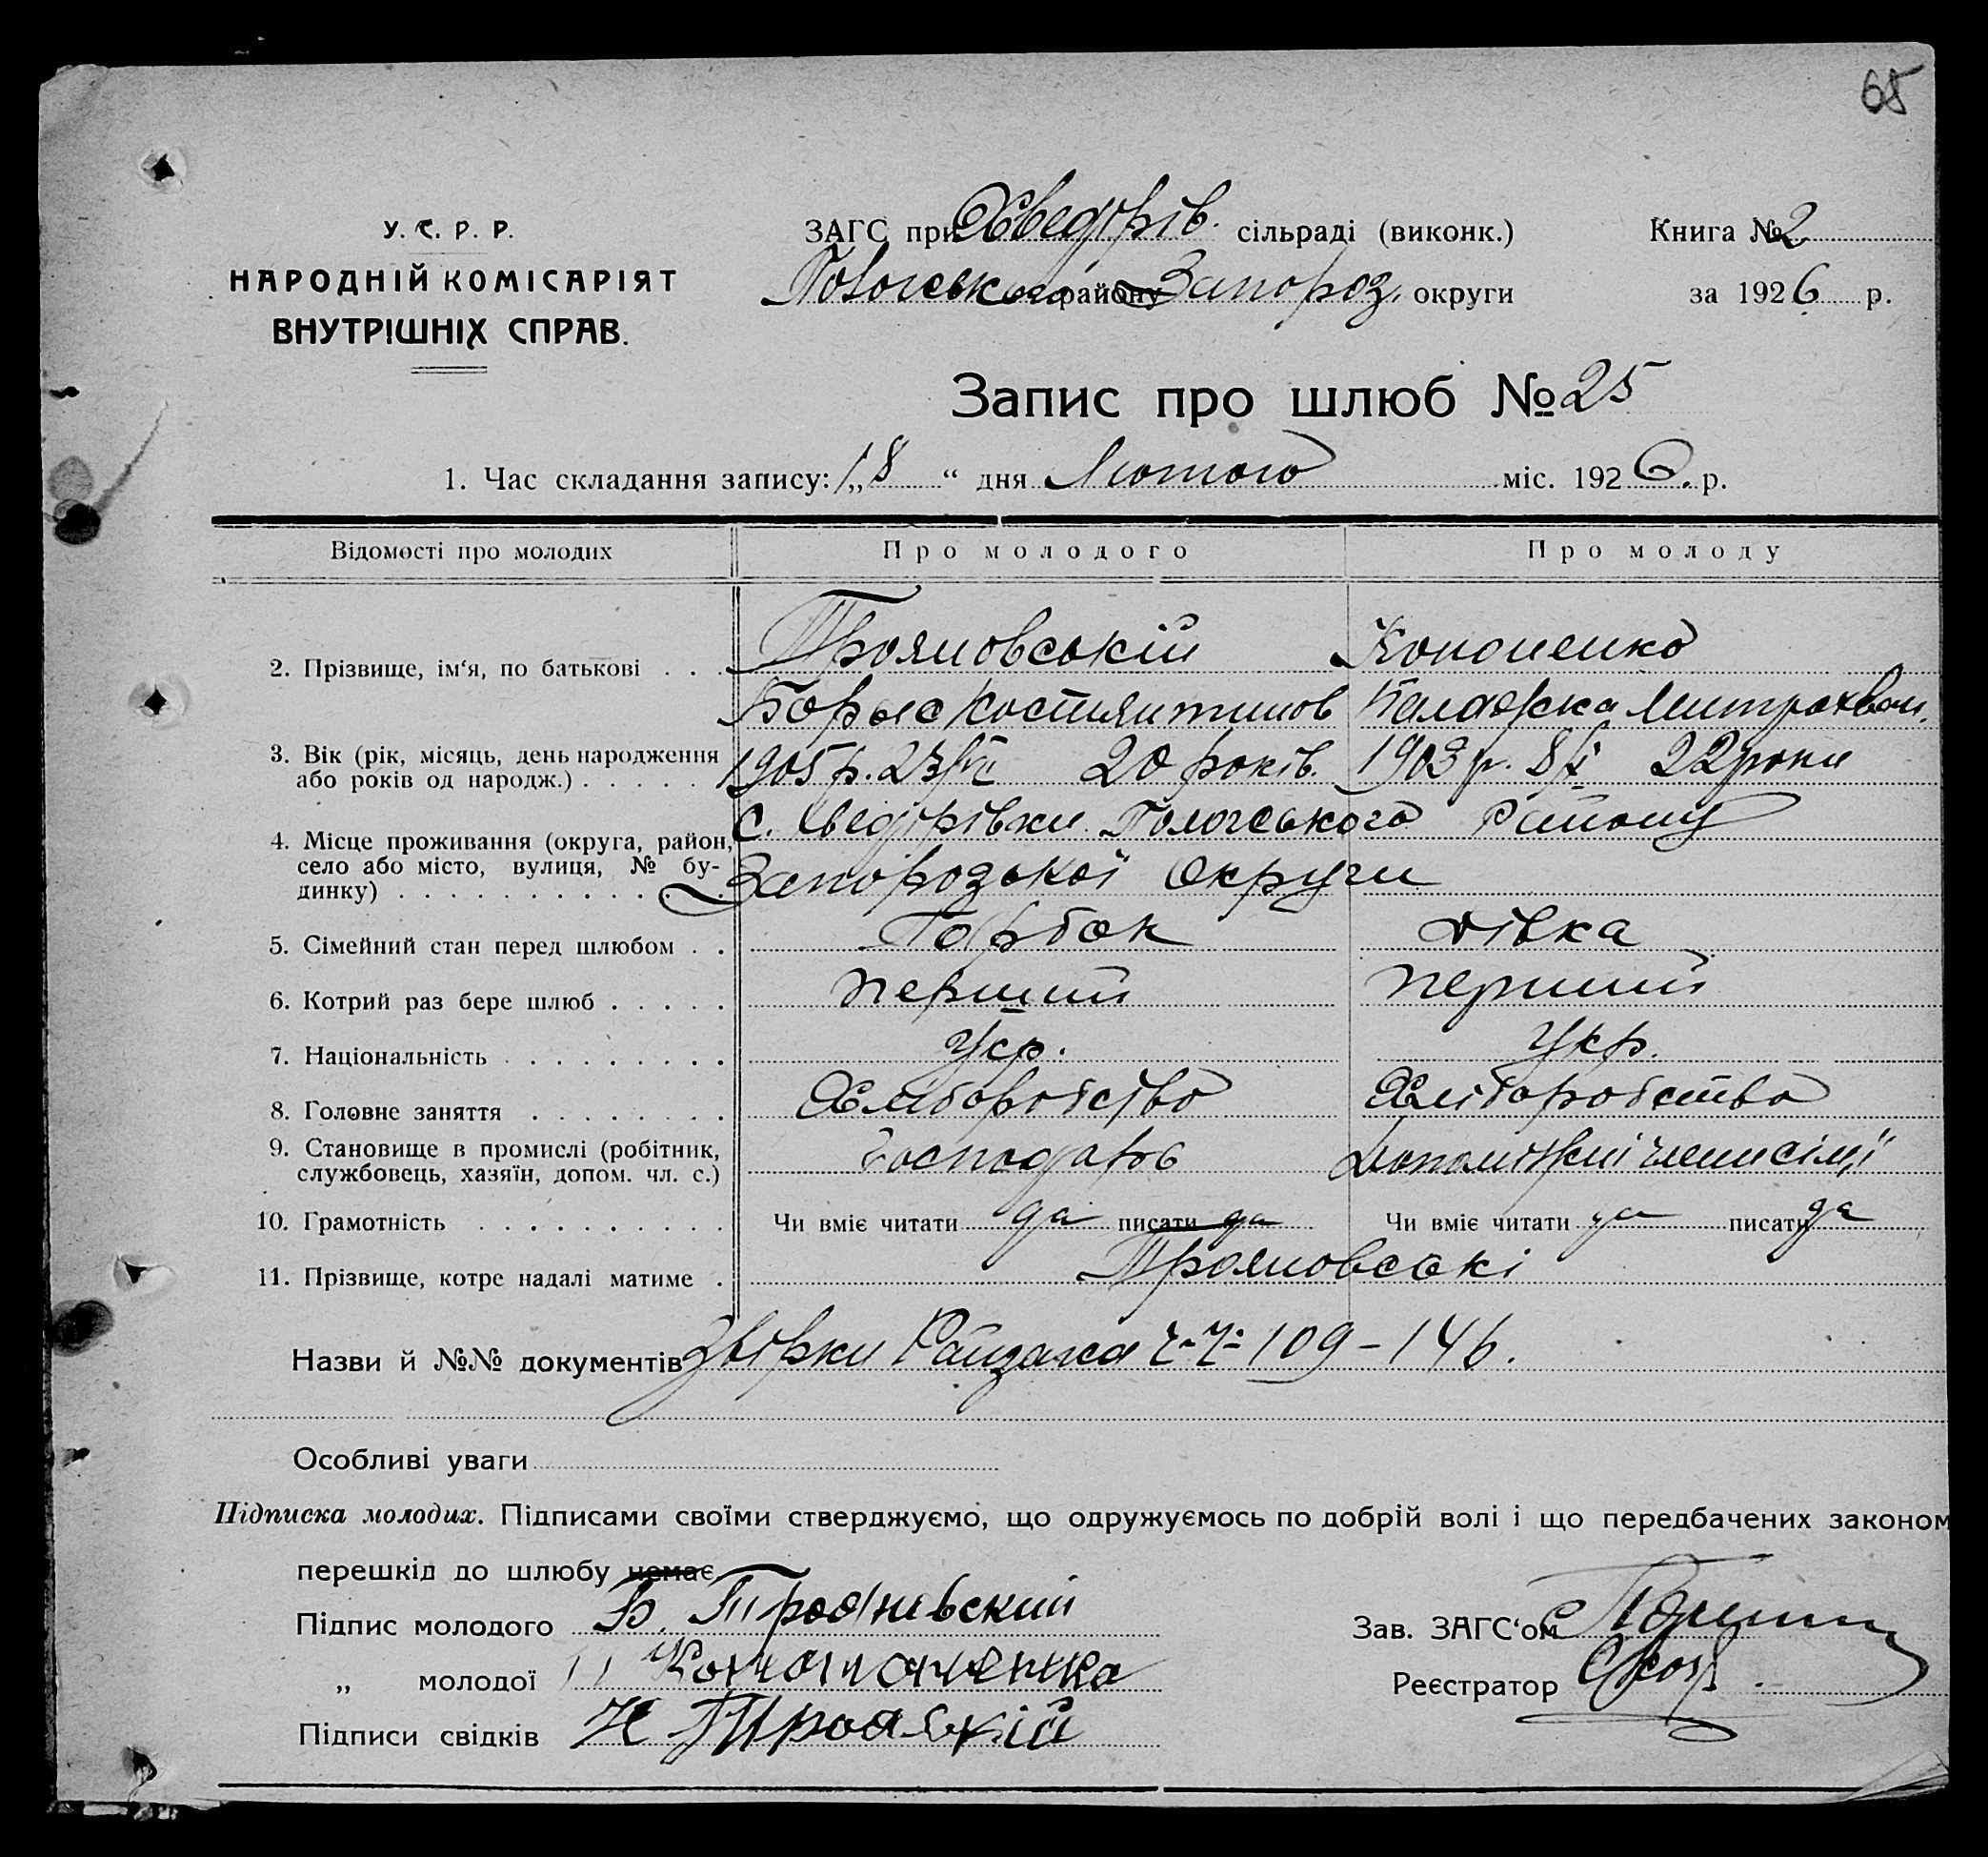 65
У. С. Р. Р.
НАРОДНІЙ КОМІСАРІЯТ
ВНУТРІШНІХ СПРАВ.
ЗАГС при Хведорів. сільраді (виконк.) Книга № 2
Пологського району Запороз. округи за 1926 р.
Запис про шлюб № 25
1. Час складання запису: „18“ дня Лютого міс. 1926. р.
Відомості про молодих Про молодого Про молоду
2. Прізвище, ім'я, по батькові Трояновській Кононенко
Борыс Костянтинов Палажка Митрахван.
3. Вік (рік, місяць, день народження
або років од народж.) 1905 р. 23/VII 20 років. 1903 р. 8/X 22 роки
4. Місце проживання (округа, район, с. Хведорівки Пологського Району
село або місто, вулиця, № бу-
динку) Запорозької Округи
5. Сімейний стан перед шлюбом дівка
6. Котрий раз бере шлюб перший перший
7. Національність Укр. Укр.
8. Головне заняття Хліборобство Хліборобство
9. Становище в промислі (робітник,
службовець, хазяїн, допом. чл. с.) Господарь Допоміжний член сімї
10. Грамотність Чи вміє читати да писати да Чи вміє читати да писати да
11. Прізвище, котре надалі матиме Трояновські
Назви й №№ документів Звірки Райзагса ч.ч. 109-146.
Особливі уваги
Підписка молодих. Підписами своїми стверджуємо, що одружуємось по добрій волі і що передбачених законом
перешкід до шлюбу немає
Підпис молодого Б. Трояневский Зав. ЗАГС'ом
„ молодої Реєстратор
Підписи свідків